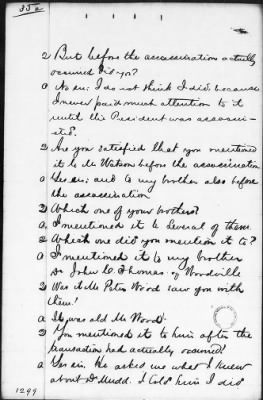 35a
Q But before the assassination actually
occurred did you?
a No sir; I do not think I did, because
I never paid much attention to it
until the President was assassin-
ated.
Q Are you satisfied that you mentioned
it to Mr Watson before the assassination
a Yes sir; and to my brother also before
the assassination
Q Which one of your brothers?
a. I mentioned it to several of them.
Q Which one did you mention it to?
a I mentioned it to my brother
Dr John C. Thomas of Woodville
Q Was it Mr Peter Wood saw you with
them?
a It was old Mr Wood.
Q You mentioned it to him after the
transaction had actually occurred?
a Yes sir. He asked me what I knew
about Dr Mudd. I told him I did
1299